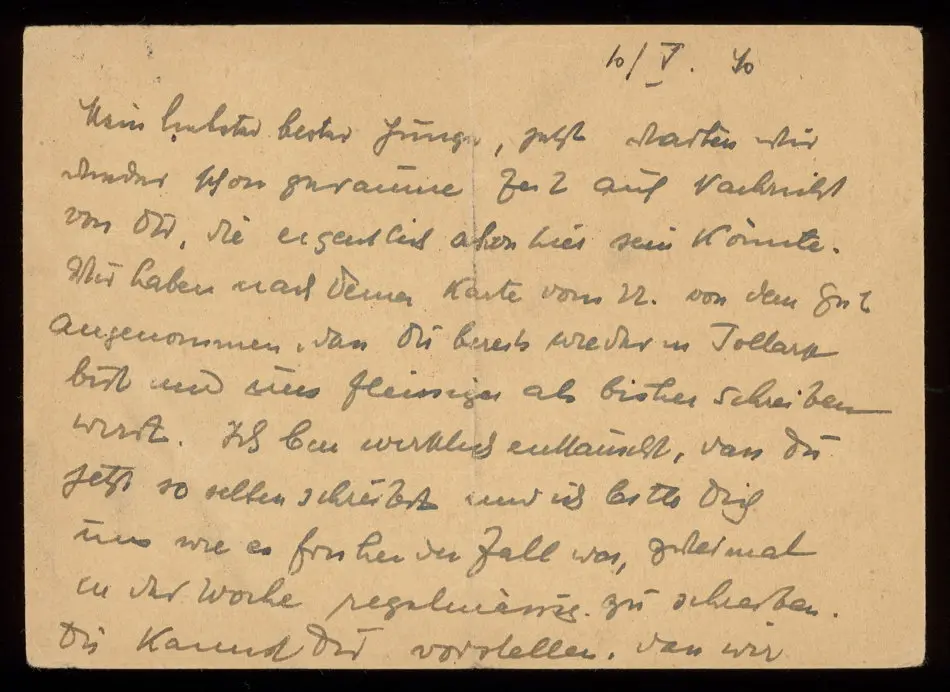 10/V. 40
Mein liebster bester Junge, jetzt warten wir
wieder schon geraume Zeit auf Nachricht
von Dir, die eigentlich schon hier sein könnte.
Wir haben nach Deiner Karte vom 22. von dem Gut
angenommen, dass Du bereits wieder in Tollarp
bist und uns fleissiger als bisher schreiben
wirst. Ich bin wirklich enttäuscht, dass Du
jetzt so selten schreibst und ich bitte Dich
uns wie es früher der Fall war, zweimal
in der Woche regelmässig zu schreiben.
Du kannst Dir vorstellen, dass wir